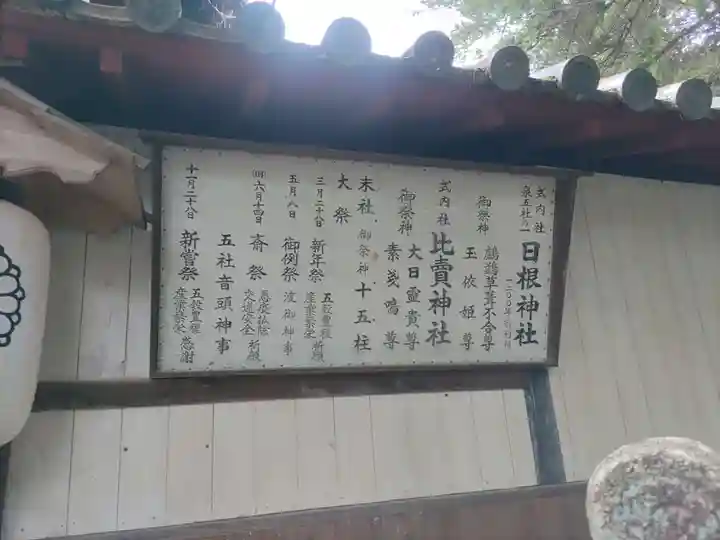 式内社
泉五社の一
日根神社
御祭神
鸕鷀草葺不合尊
玉依姫尊
式内社
比賣神社
御祭神
大日霊貴尊
素戔鳴尊
末社 御祭神 十五柱
大祭
三月二十八日 新年祭 五穀豊穣 産業繁栄 祈願
五月八日 御例祭 渡御神事
六月十四日 斎祭 悪疫払除 交通安全 祈願
五社音頭神事
十一月二十八日 新嘗祭 五穀豊穣 産業繁栄 感謝